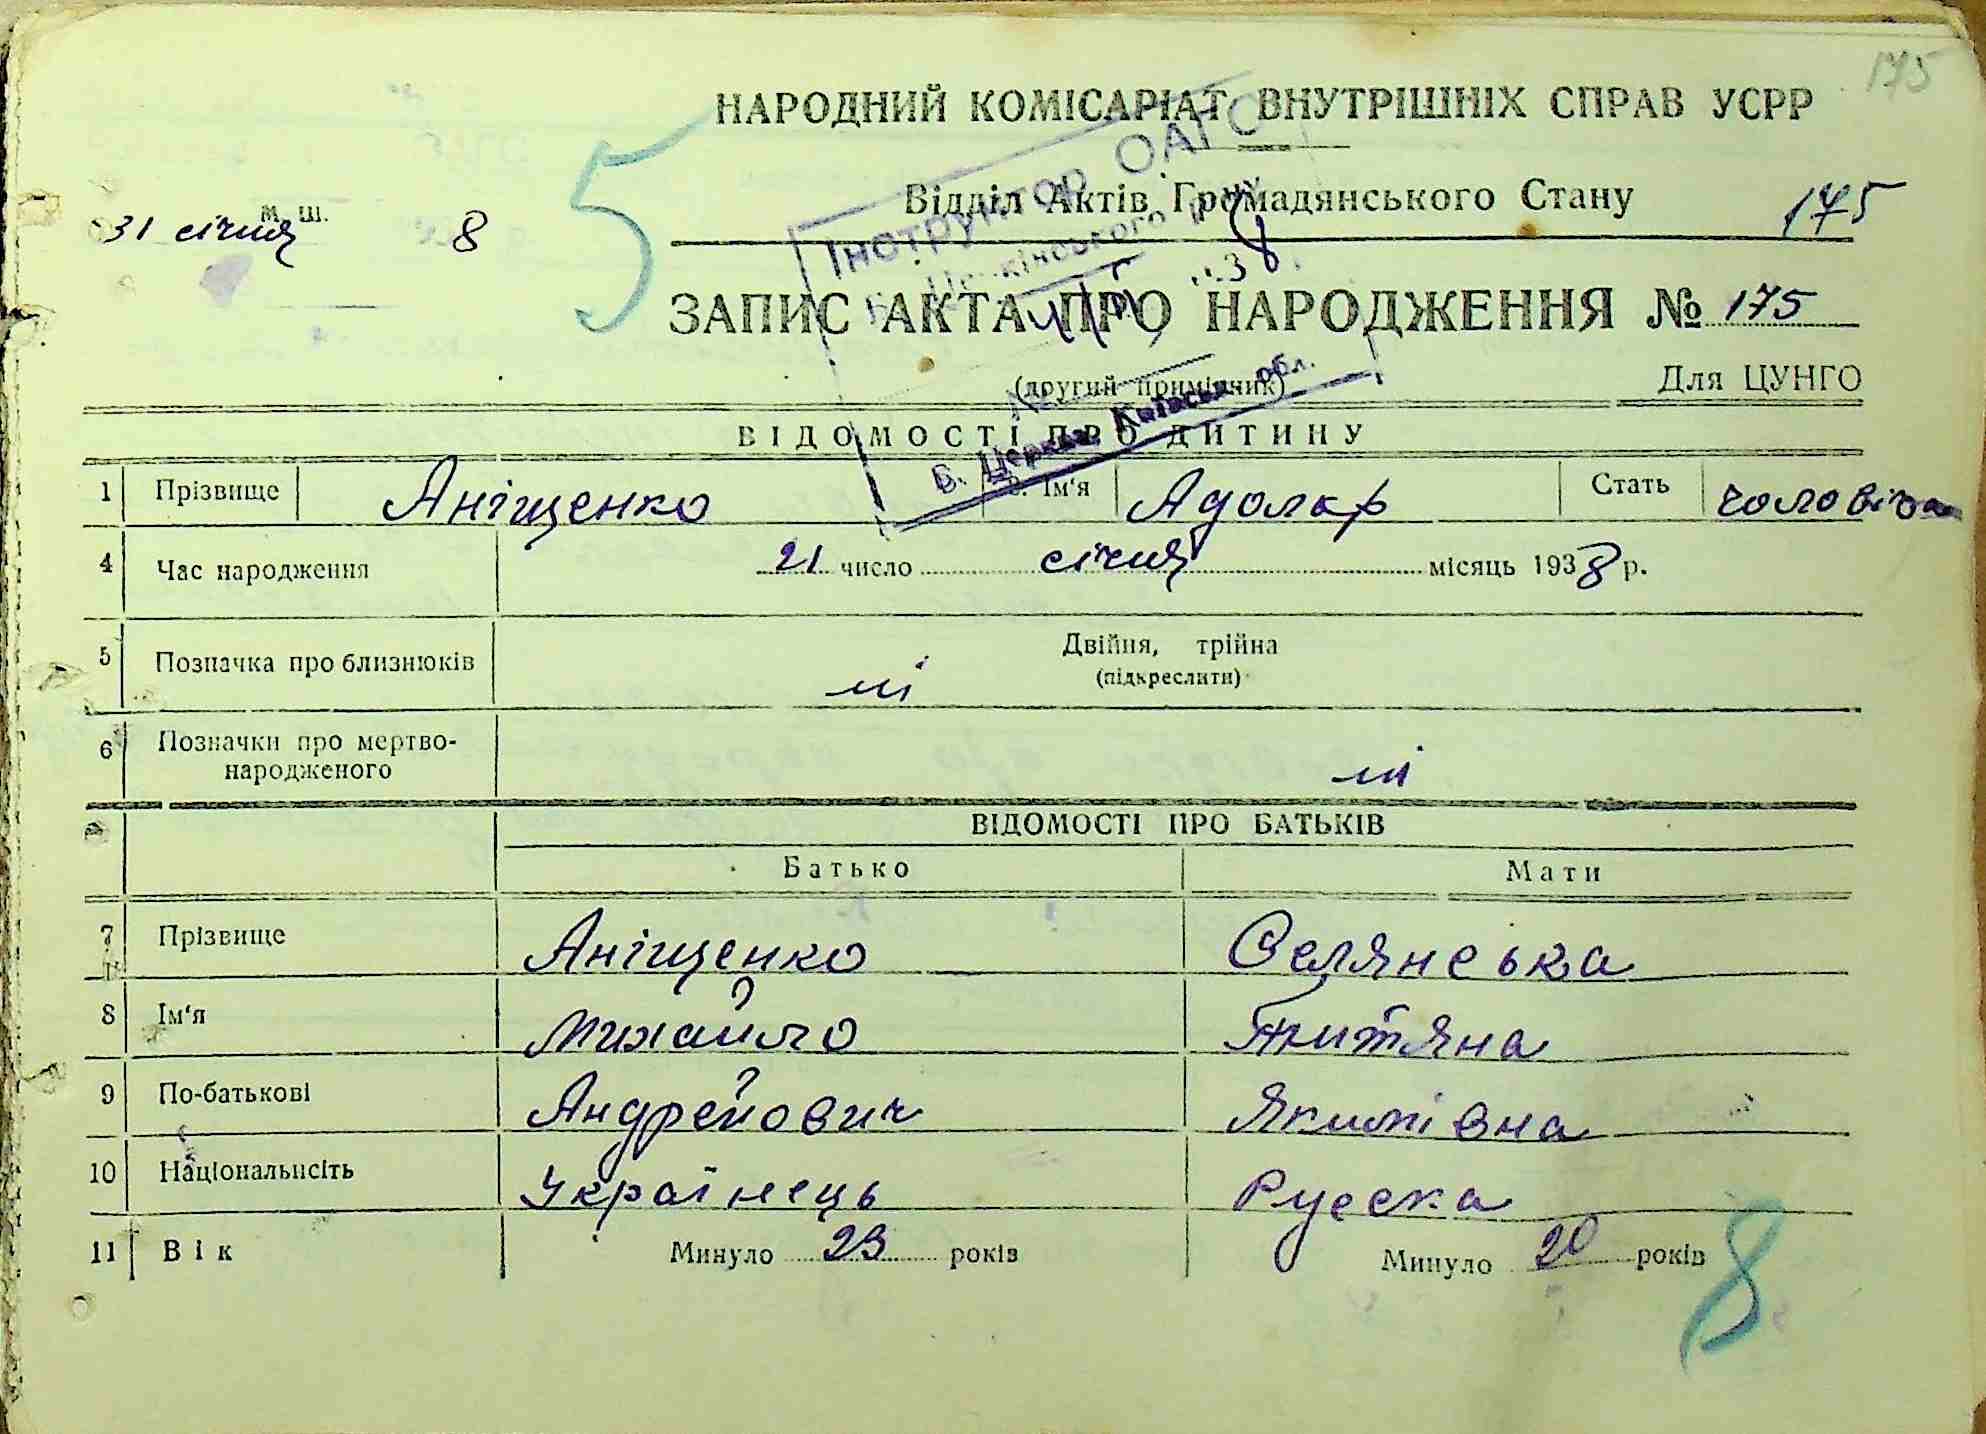 175
НАРОДНИЙ КОМІСАРІАТ ВНУТРІШНІХ СПРАВ УСРР
5
Відділ Актів Громадянського Стану
175
м. ш.
31 січня 8
Інструктор ОАГС
ЗАПИС АКТА ПРО НАРОДЖЕННЯ № 175
(другий примірник)
Для ЦУНГО
Б. Церква, Київськ. обл.
ВІДОМОСТІ ПРО ДИТИНУ
1 Прізвище Аніщенко Ім'я Адольф Стать чоловіча
4 Час народження 21 число січня місяць 1938 р.
5 Позначка про близнюків ні Двійня, трійна
(підкреслити)
6 Позначки про мертво-
народженого ні
ВІДОМОСТІ ПРО БАТЬКІВ
Батько Мати
7 Прізвище Аніщенко Селянська
8 Ім'я Михайло Титяна
9 По-батькові Андрейович Якимівна
10 Національність Українець Руська
11 Вік Минуло 23 років Минуло 20 років
8